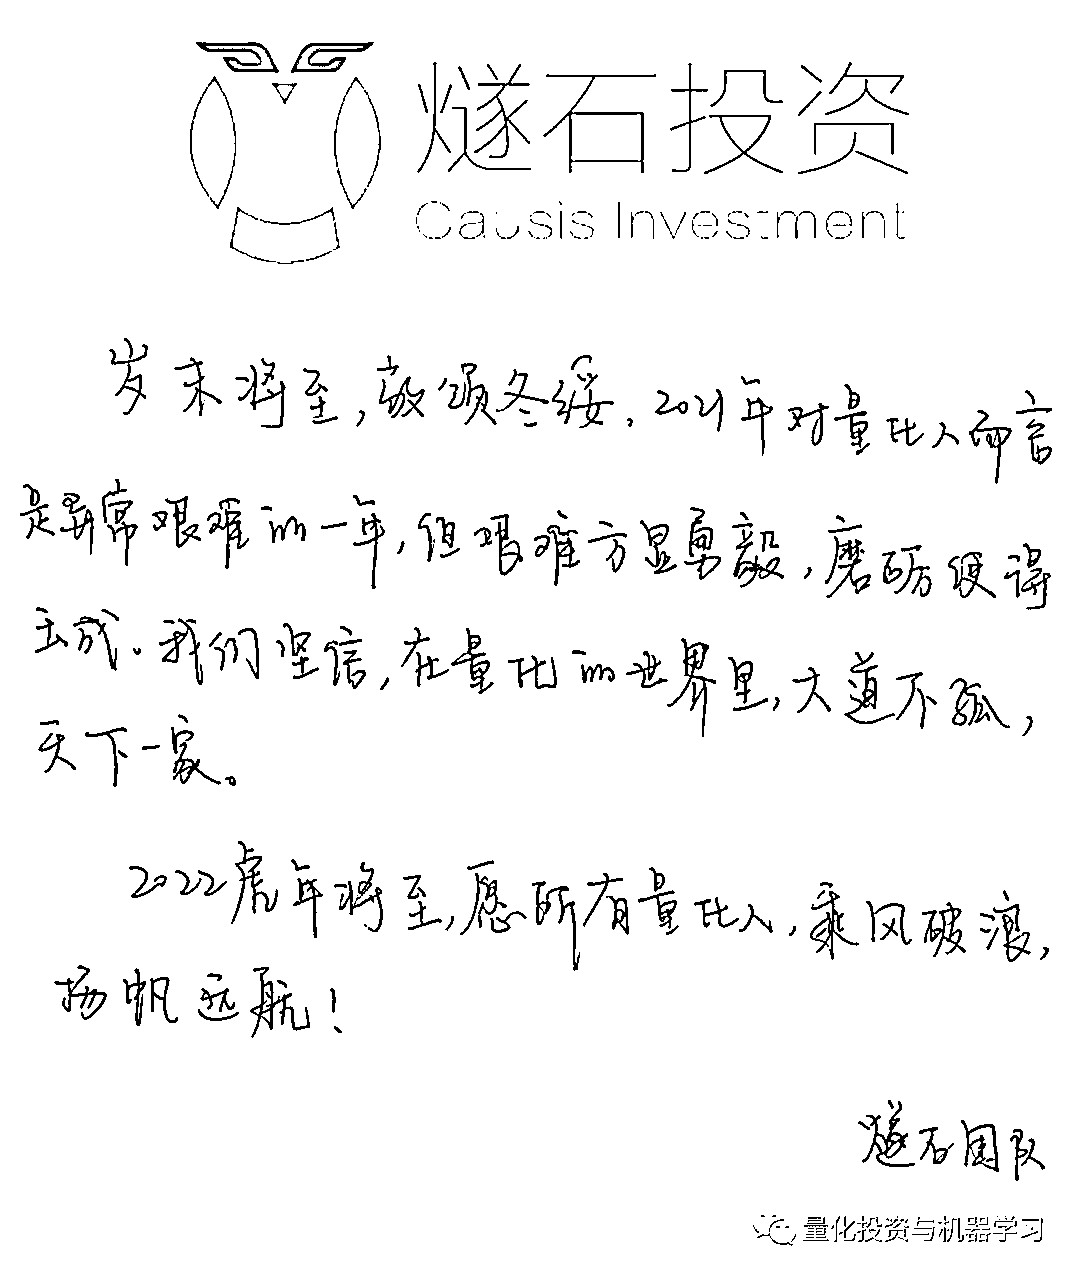 燧石投资
Causis Investment
岁末将至，敬颂冬绥，2021年对量化人而言
是异常艰难的一年，但艰难方显勇毅，磨砺便得
玉成。我们坚信，在量化的世界里，大道不孤，
天下一家。
2022虎年将至，愿所有量化人，乘风破浪，
扬帆远航！
燧石团队
量化投资与机器学习